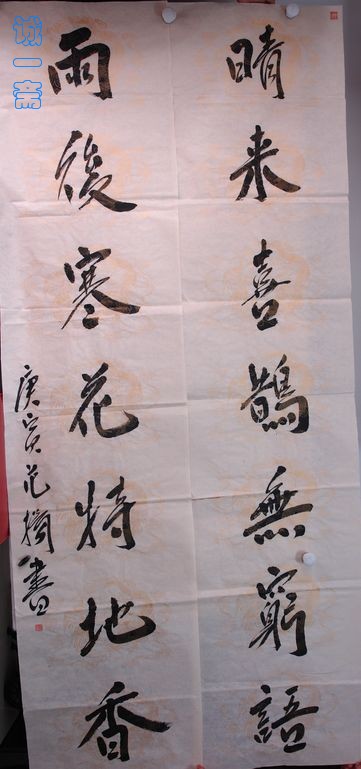 晴来喜鵲無窮語
雨後寒花特地香
庚寅范
書
诚一斋